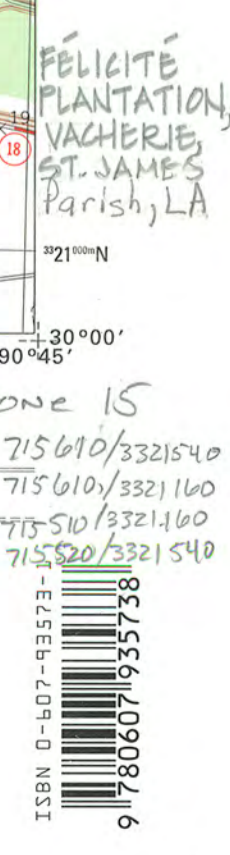 FÉLICITÉ
PLANTATION,
VACHERIE,
ST. JAMES
Parish, LA
19
18
³³21⁰⁰⁰ᵐN
30°00′
90°45′
ONE 15
715610/3321540
715610/3321160
715510/3321160
715520/3321540
ISBN 0-607-93573-
9 780607 935738